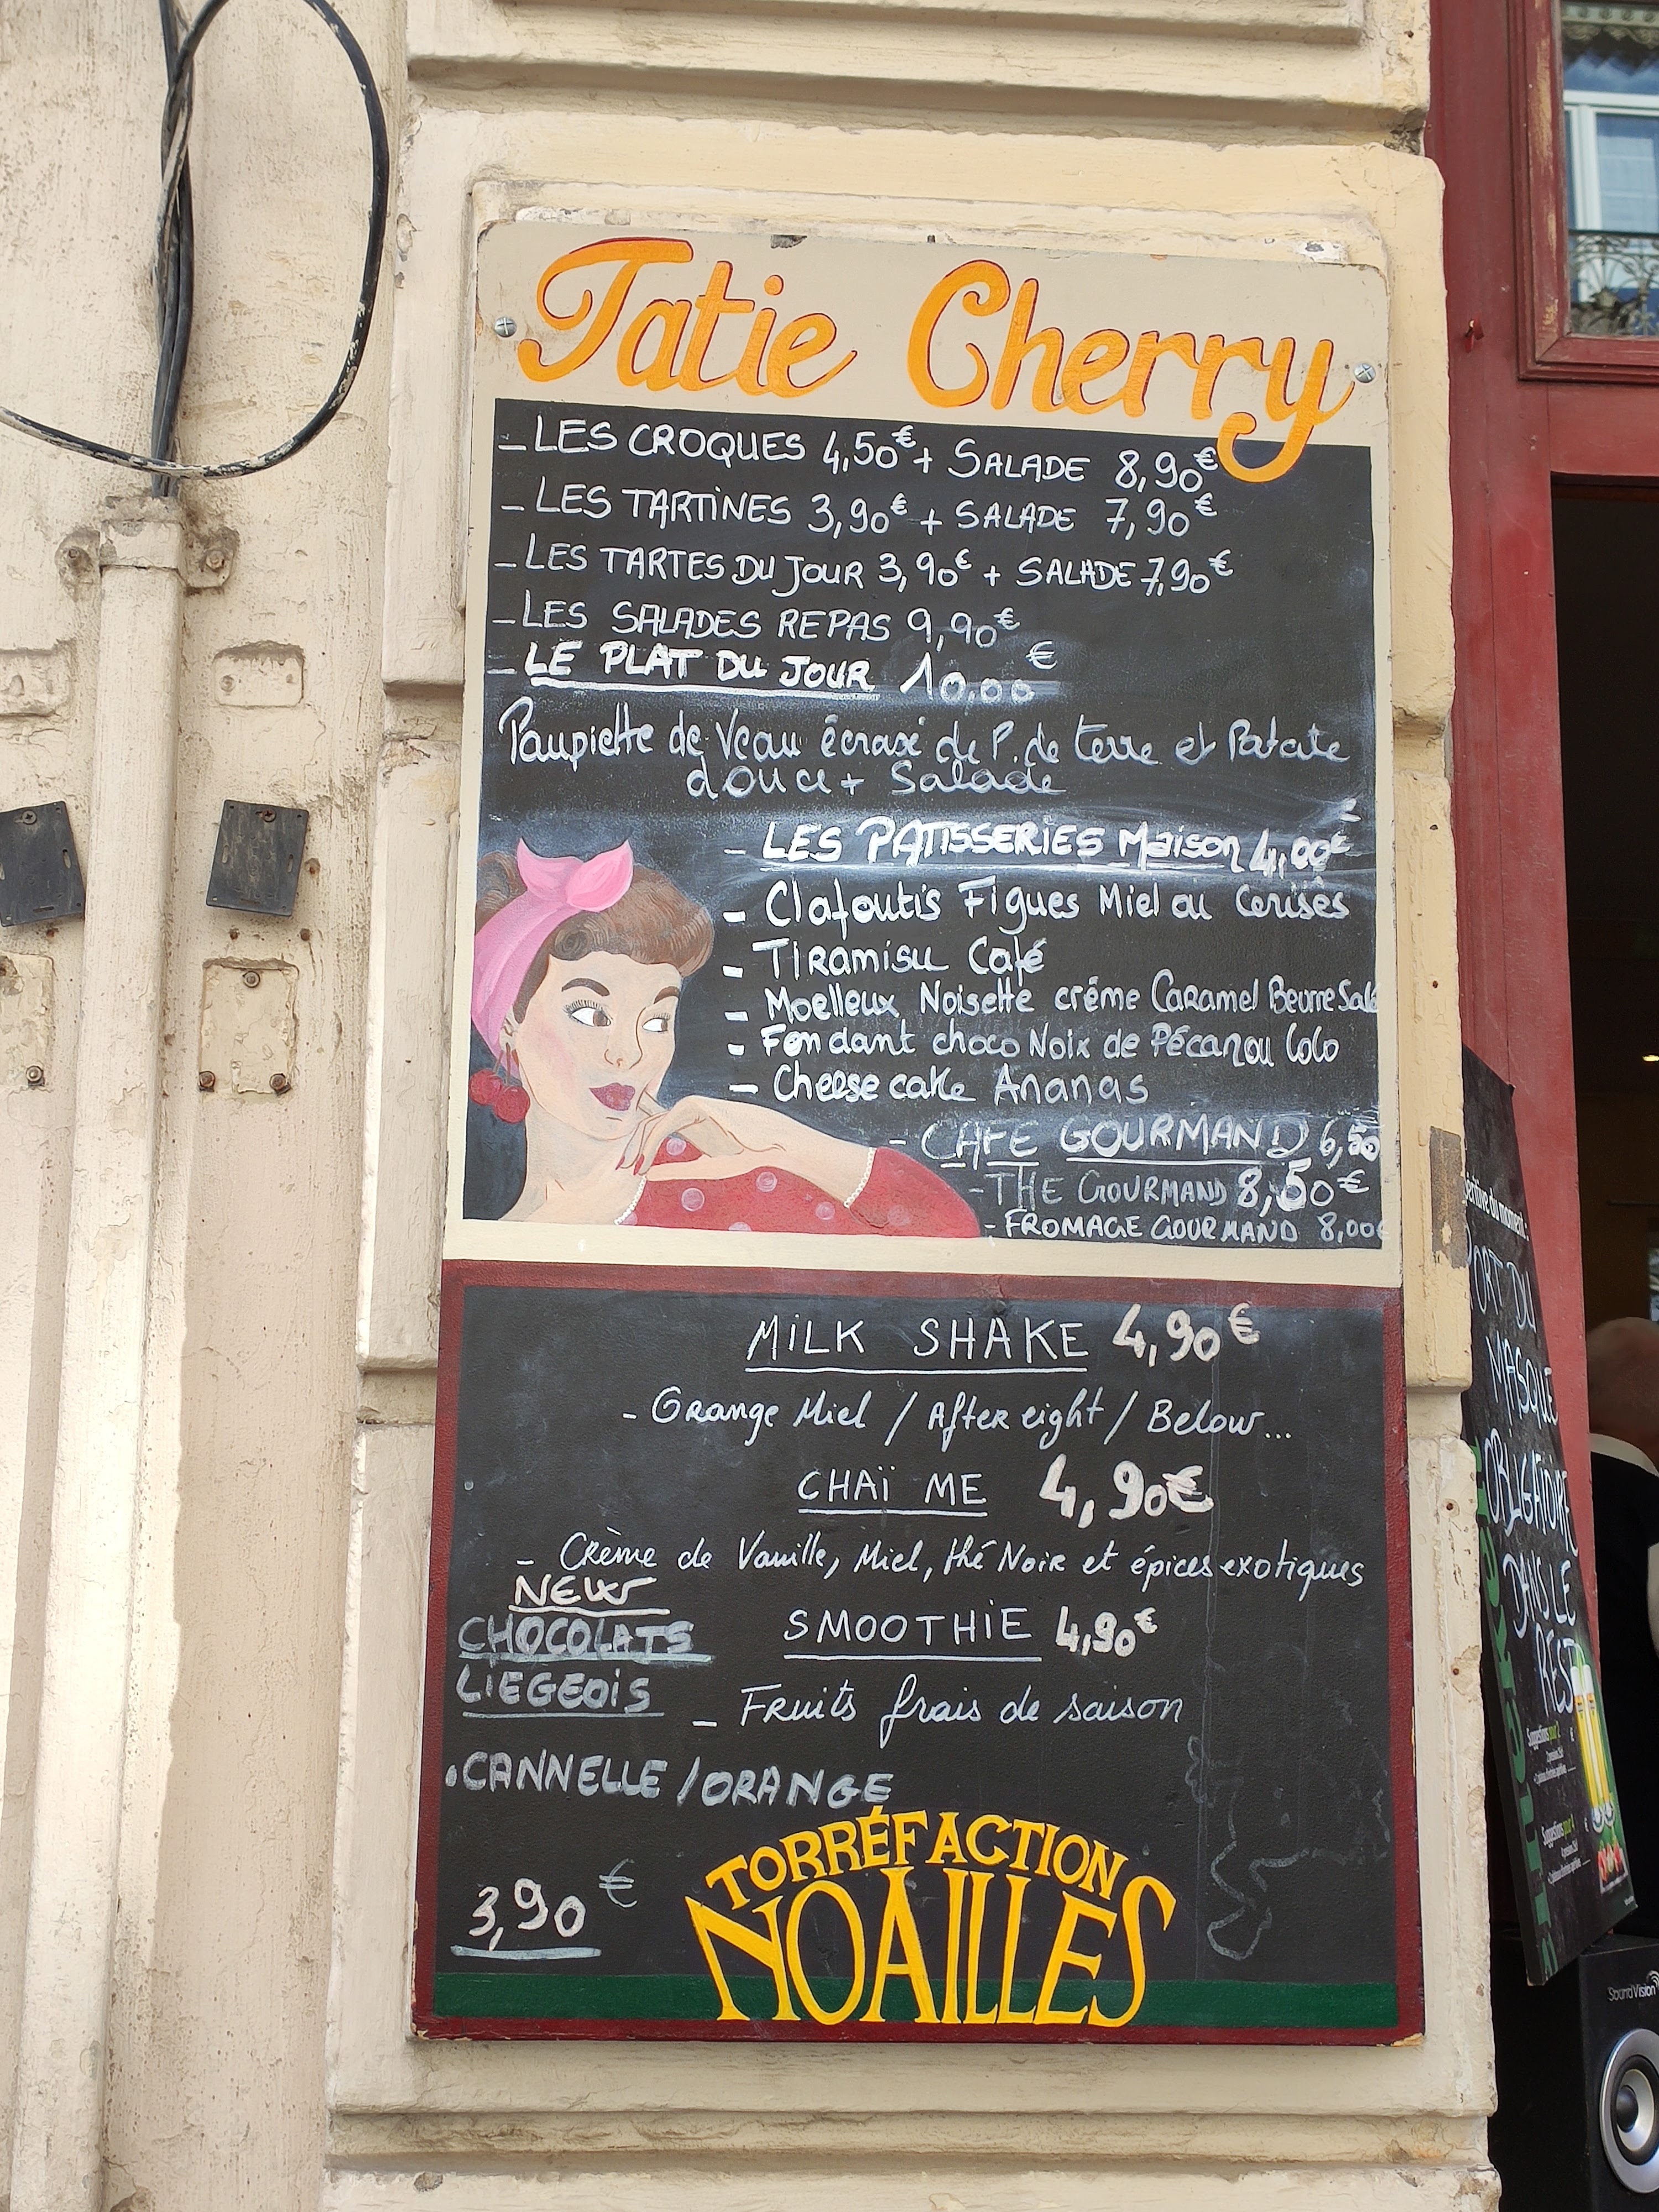 Tatie Cherry
- LES CROQUES 4,50€ + SALADE 8,90€
- LES TARTINES 3,90€ + SALADE 7,90€
- LES TARTES DU JOUR 3,90€ + SALADE 7,90€
- LES SALADES REPAS 9,90€
- LE PLAT DU JOUR 10,00€
Paupiette de Veau écrasé de P. de terre et Patate
douce + Salade
- LES PATISSERIES Maison 4,00€
- Clafoutis Figues Miel ou Cerises
- TIRamisu Café
- Moelleux Noisette crème CaRamel Beurre Salé
- Fondant choco Noix de Pécan ou Coco
- Cheese cake Ananas
- CAFE GOURMAND 6,50
- THE GOURMAND 8,50€
- FROMAGE GOURMAND 8,00€
MILK SHAKE 4,90€
- Orange Miel / After eight / Below...
CHAÏ ME 4,90€
- Crème de Vanille, Miel, thé Noir et épices exotiques
NEW
CHOCOLATS
LIEGEOIS
SMOOTHIE 4,90€
- Fruits frais de saison
.CANNELLE / ORANGE
3,90€
TORRÉFACTION
NOAILLES
du moment :
PORT DU
MASQUE
OBLIGATOIRE
DANS LE
REST
SoundVision